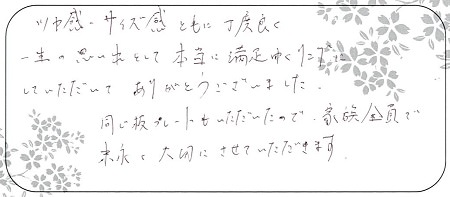 ツヤ感・サイズ感ともに丁度良く
一生の思い出として本当に満足ゆくリングに
していただいてありがとうございました.
同じ板プレートもいただいたので、家族全員で
末永く大切にさせていただきます.